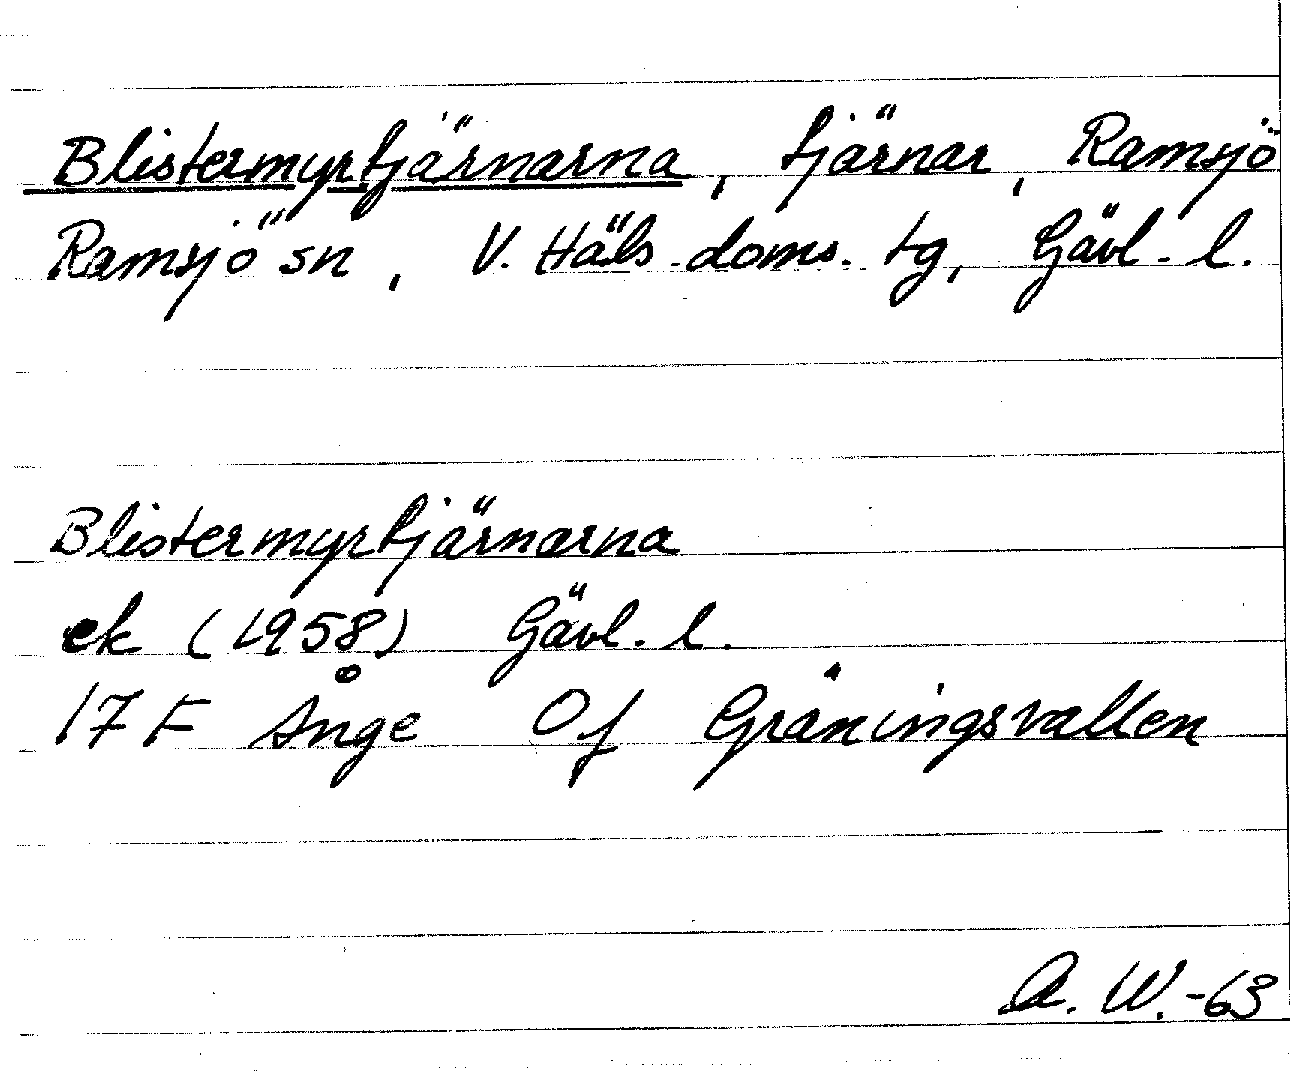 Blistermyrtjärnarna, tjärnar, Ramsjö
Ramsjö sn, V. Häls. doms. tg, Gävl. l.
Blistermyrtjärnarna
ek (1958) Gävl. l.
17 F Ånge Of Gräningsvallen
A. W. -63